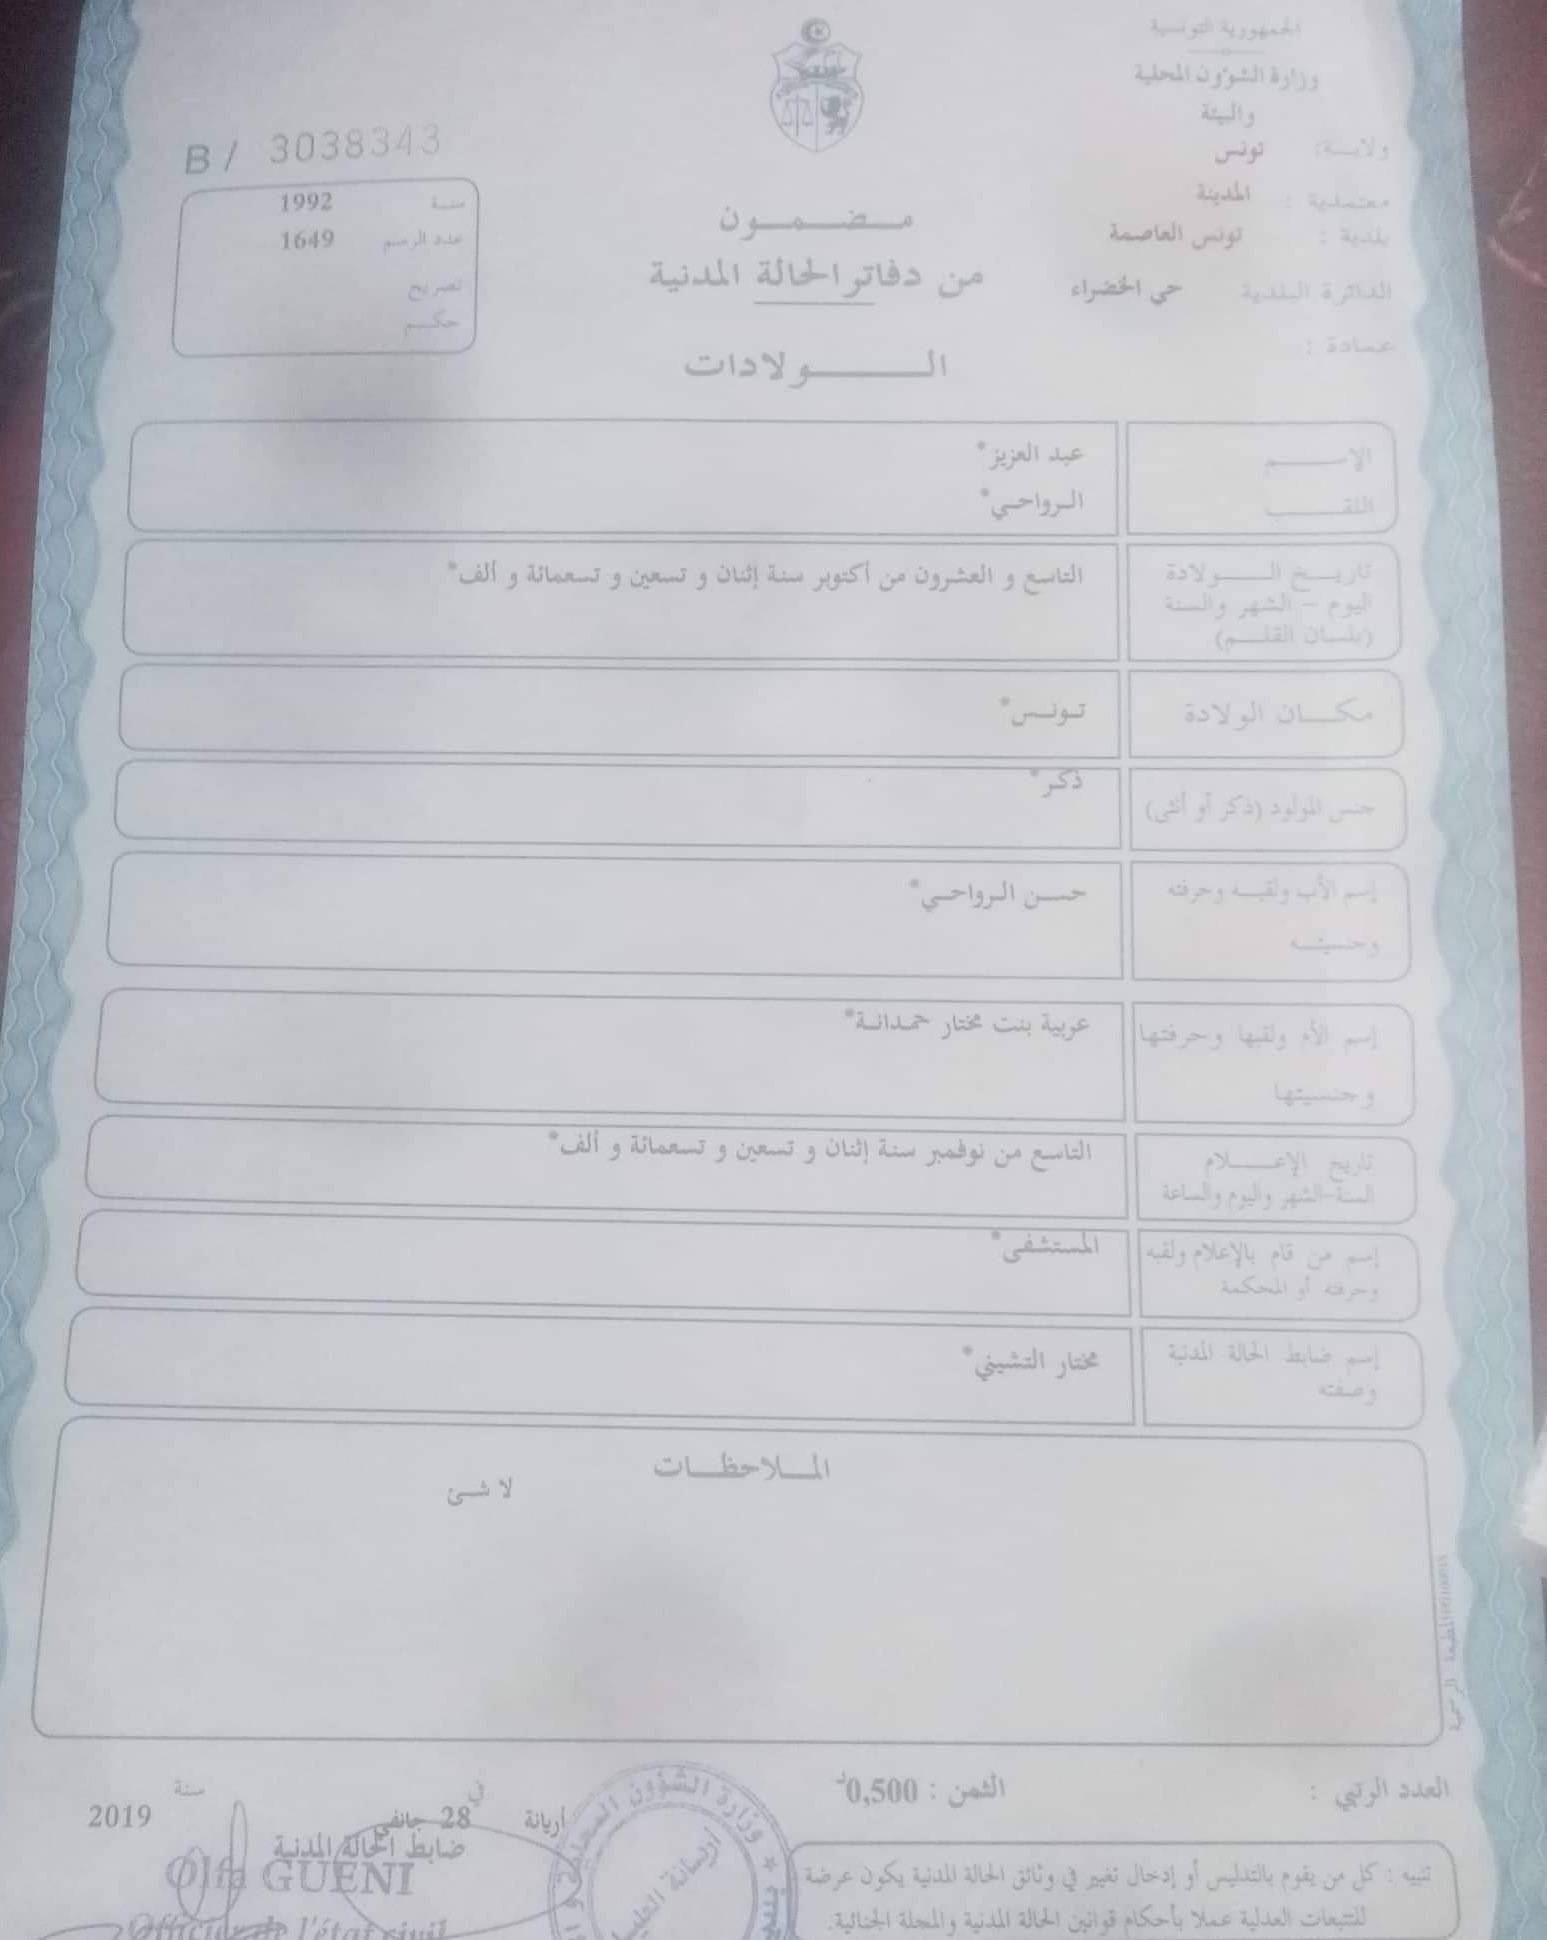 الجمهورية التونسية
وزارة الشؤون المحلية
والبيئة
ولايـــة: تونس
معتمدية : المدينة
بلدية : تونس العاصمة
الدائرة البلدية حي الخضراء
عمادة :
B / 3038343
سنـــة 1992
عدد الرسم 1649
تصريح
حكـــم
مـضـمـــون
من دفاتر الحالة المدنية
الـــــولادات
الإســـــم عبد العزيز*
اللقـــــب الـرواحـي*
تاريـــخ الـــــولادة التاسع و العشرون من أكتوبر سنة إثنان و تسعين و تسعمائة و ألف*
اليوم – الشهر والسنة
(بلسان القلـــم)
مكـــان الولادة تـونـس*
جنس المولود (ذكر أو أنثى) ذكـر*
إسم الأب ولقبـــه وحرفته حســن الـرواحـي*
وجنسيتـــه
إسم الأم ولقبها وحرفتها عربية بنت مختار حمـدانـة*
وجنسيتها
تاريخ الإعـــــلام التاسع من نوفمبر سنة إثنان و تسعين و تسعمائة و ألف*
السنة-الشهر واليوم والساعة
إسم من قام بالإعلام ولقبه المستشفى*
وحرفته أو المحكمة
إسم ضابط الحالة المدنية مختار التشيني*
وصفته
المـــلاحظـــات
لا شـــئ
المطبعة الرسمية
العدد الرتبي :
الثمن : 0,500د
أريانة في 28 جانفي سنة 2019
ضابط الحالة المدنية
Olfa GUENI
Officier de l'état civil
وزارة الشؤون المحلية و
أريـــانة العليـــا
تنبيه : كل من يقوم بالتدليس أو إدخال تغيير في وثائق الحالة المدنية يكون عرضة
للتتبعات العدلية عملا بأحكام قوانين الحالة المدنية والمجلة الجنائية.